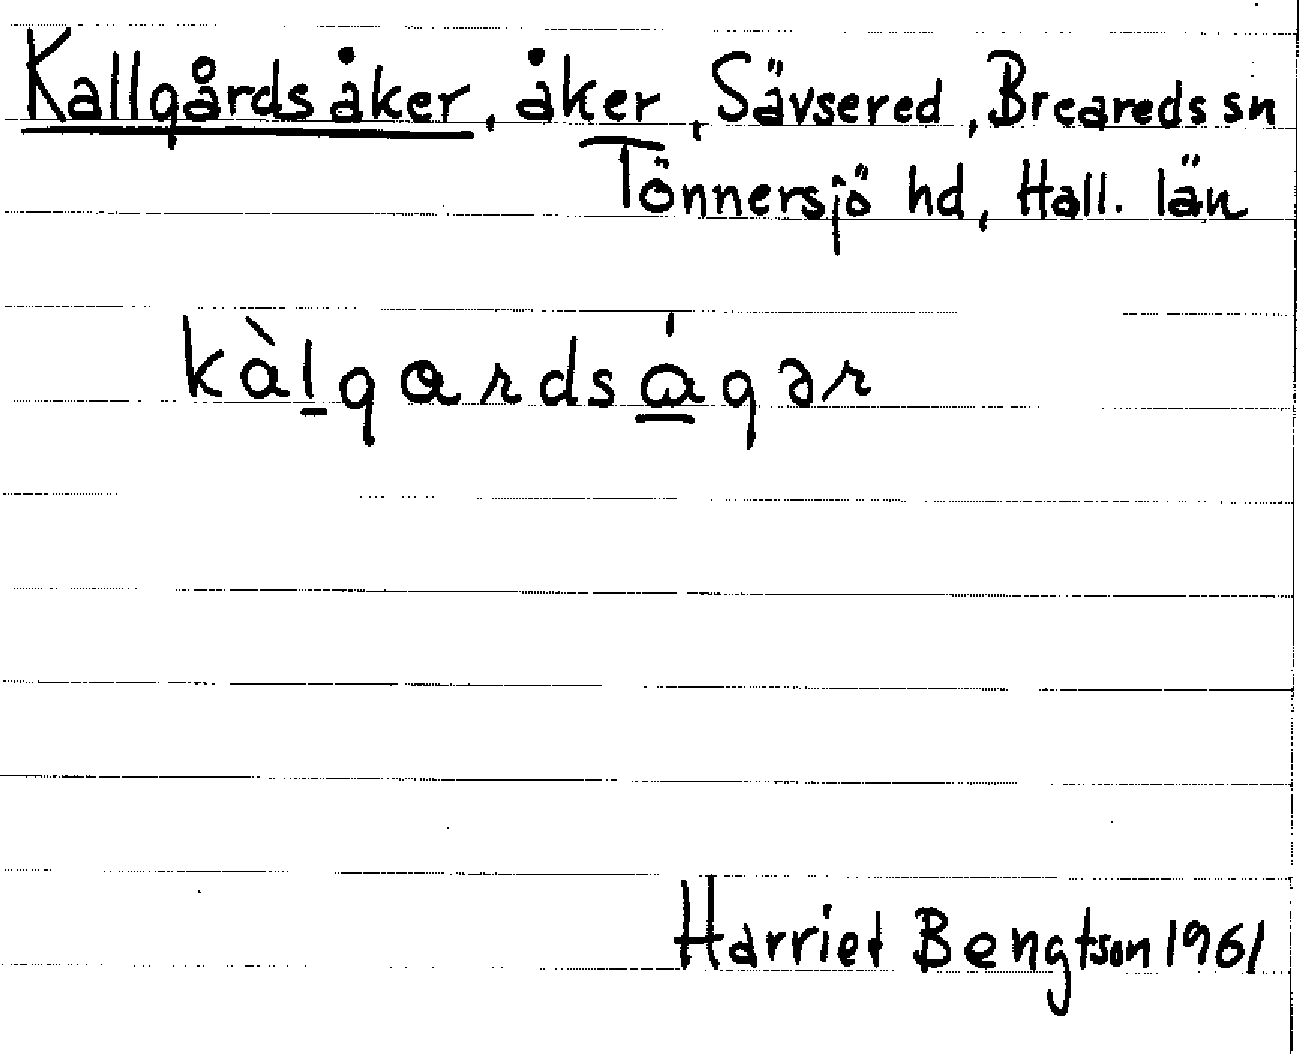 Kallgårdsåker, åker, Sävsered, Breareds sn
Tönnersjö hd, Hall. län
kàl̠gɑrdsɑ̠́gər
Harriet Bengtson 1961